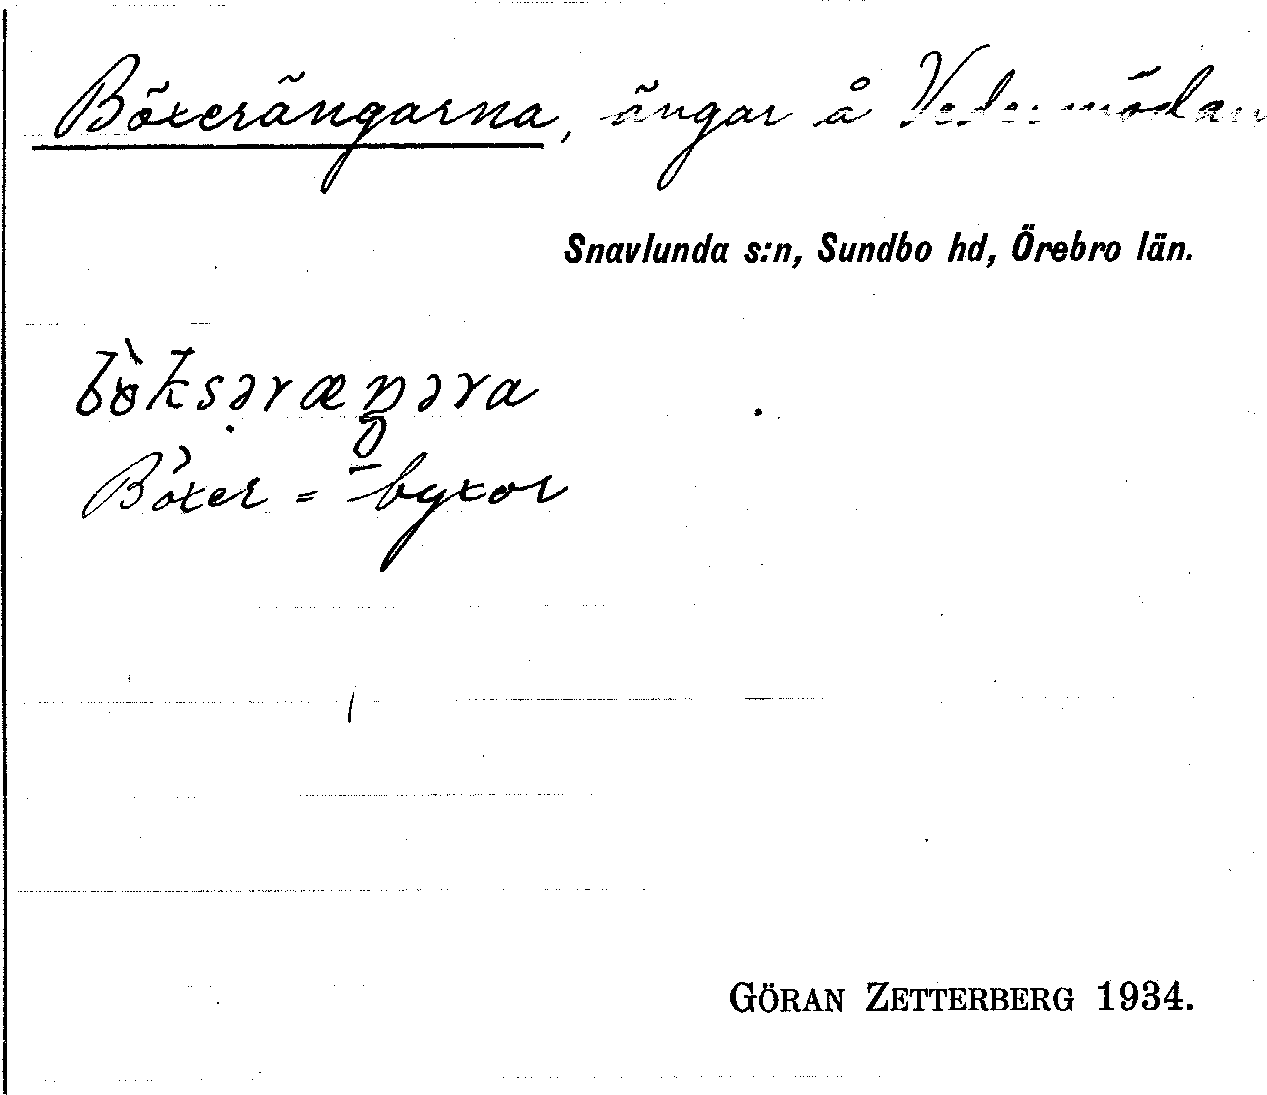 Böxerängarna, ängar å Vedermödan
Snavlunda s:n, Sundbo hd, Örebro län.
bø̀ksəræŋəra
Böxer = byxor
GÖRAN ZETTERBERG 1934.